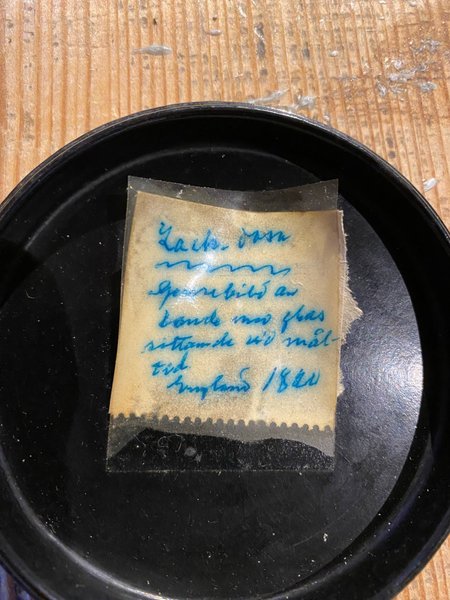 Lack. dosa
Genrebild av
bonde med glas
sittande vid mål-
tid
England 1820